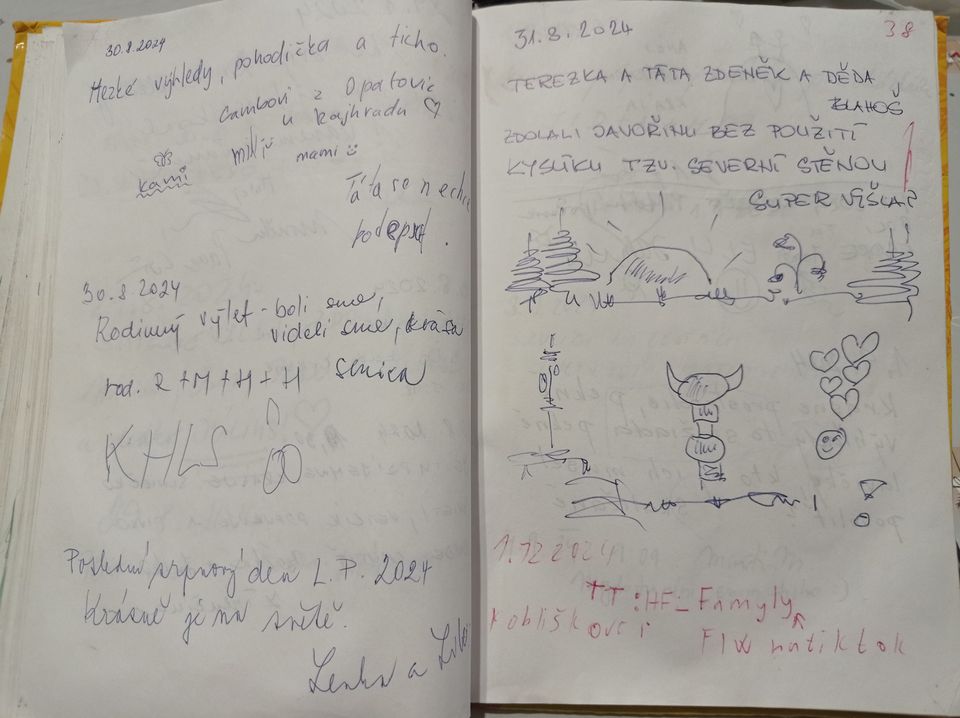 30.8.2024
Hezké výhledy, pohodička a ticho.
Cambovi z Opatovic
u Rajhradu ♡
kami
mami
Táta se nechce
podepsat.
30.8.2024
Rodinný výlet - boli sme,
videli sme, krása
rod. R + M + H + H Senica
KHLS
Poslední srpnový den L.P. 2024
Krásně je na světě.
Lenka a
31.8.2024
38
TEREZKA A TÁTA ZDENĚK A DĚDA
BLAHOŠ
ZDOLALI JAVOŘINU BEZ POUŽITÍ
KYSLÍKU TZV. SEVERNÍ STĚNOU
SUPER VÍŠLAP
1.12 2024
TT:HF_Famyly
Kobliškovci
FlW na tiktok